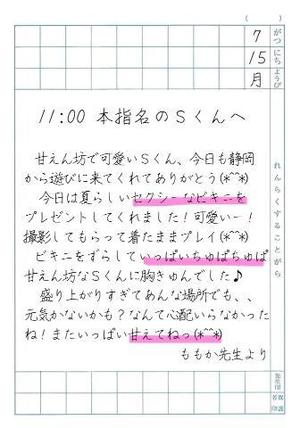 ( )
7 がつ
15 にち
月 ようび
れんらくすることがら
11:00 本指名のSくんへ
甘えん坊で可愛いSくん、今日も静岡
から遊びに来てくれてありがとう(*^^*)
今日は夏らしいセクシーなビキニを
プレゼントしてくれました!可愛いー!
撮影してもらって着たままプレイ(*^^*)
ビキニをずらしていっぱいちゅぱちゅぱ
甘えん坊なSくんに胸きゅんでした♪
盛り上がりすぎてあんな場所でも、、
元気かないかも?なんて心配いらなかった
ね!またいっぱい甘えてねっ(*^^*)
ももか先生より